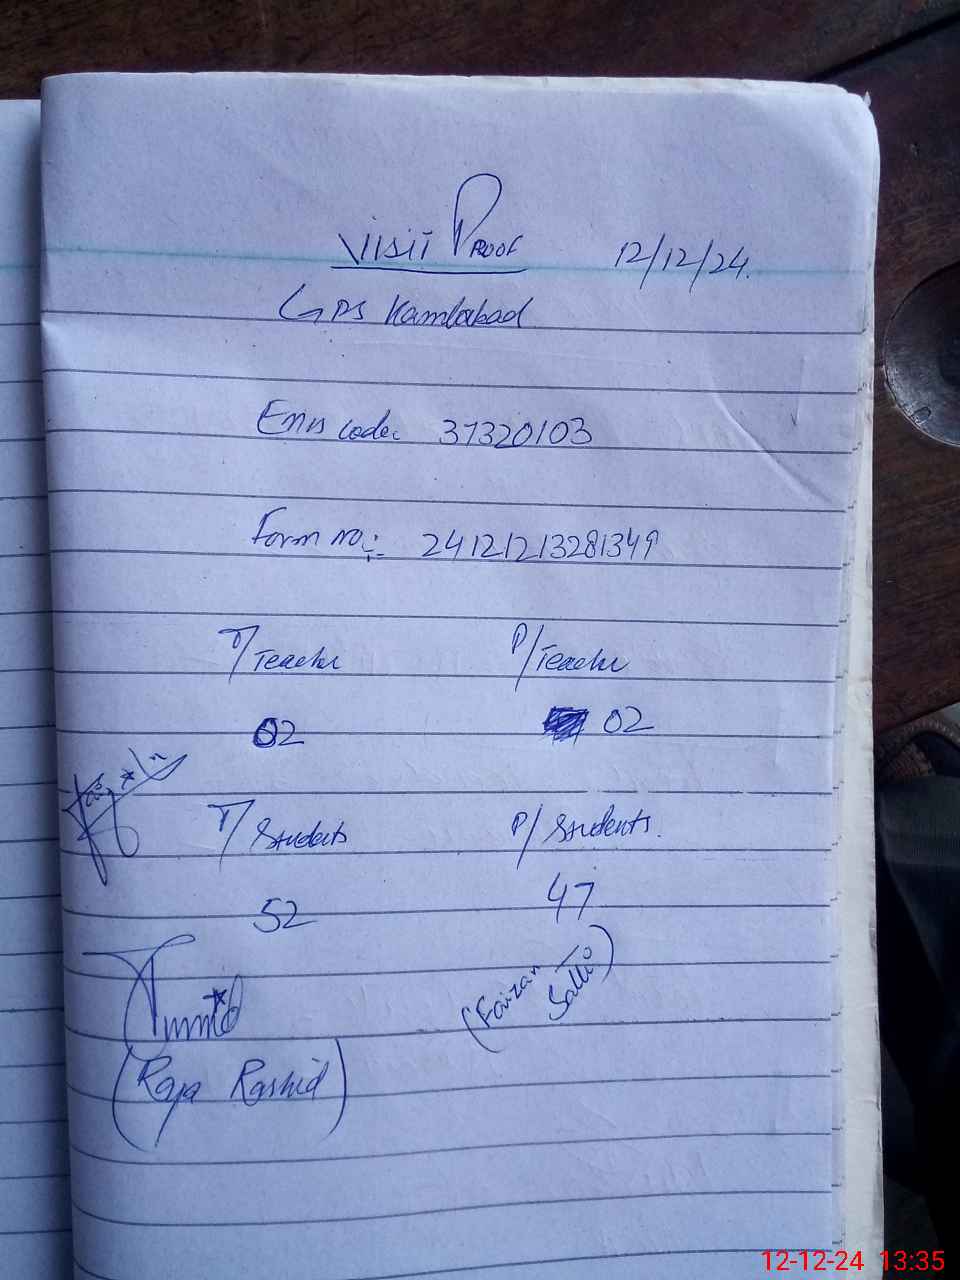 VISIT PROOF 12/12/24.
GPS Kamlabad
Emis code:- 37320103
Form no:- 24121213281349
T/Teacher P/Teacher
02 02
T/Students P/Students.
52 47
(Faizan Satti)
(Raja Rashid)
12-12-24 13:35